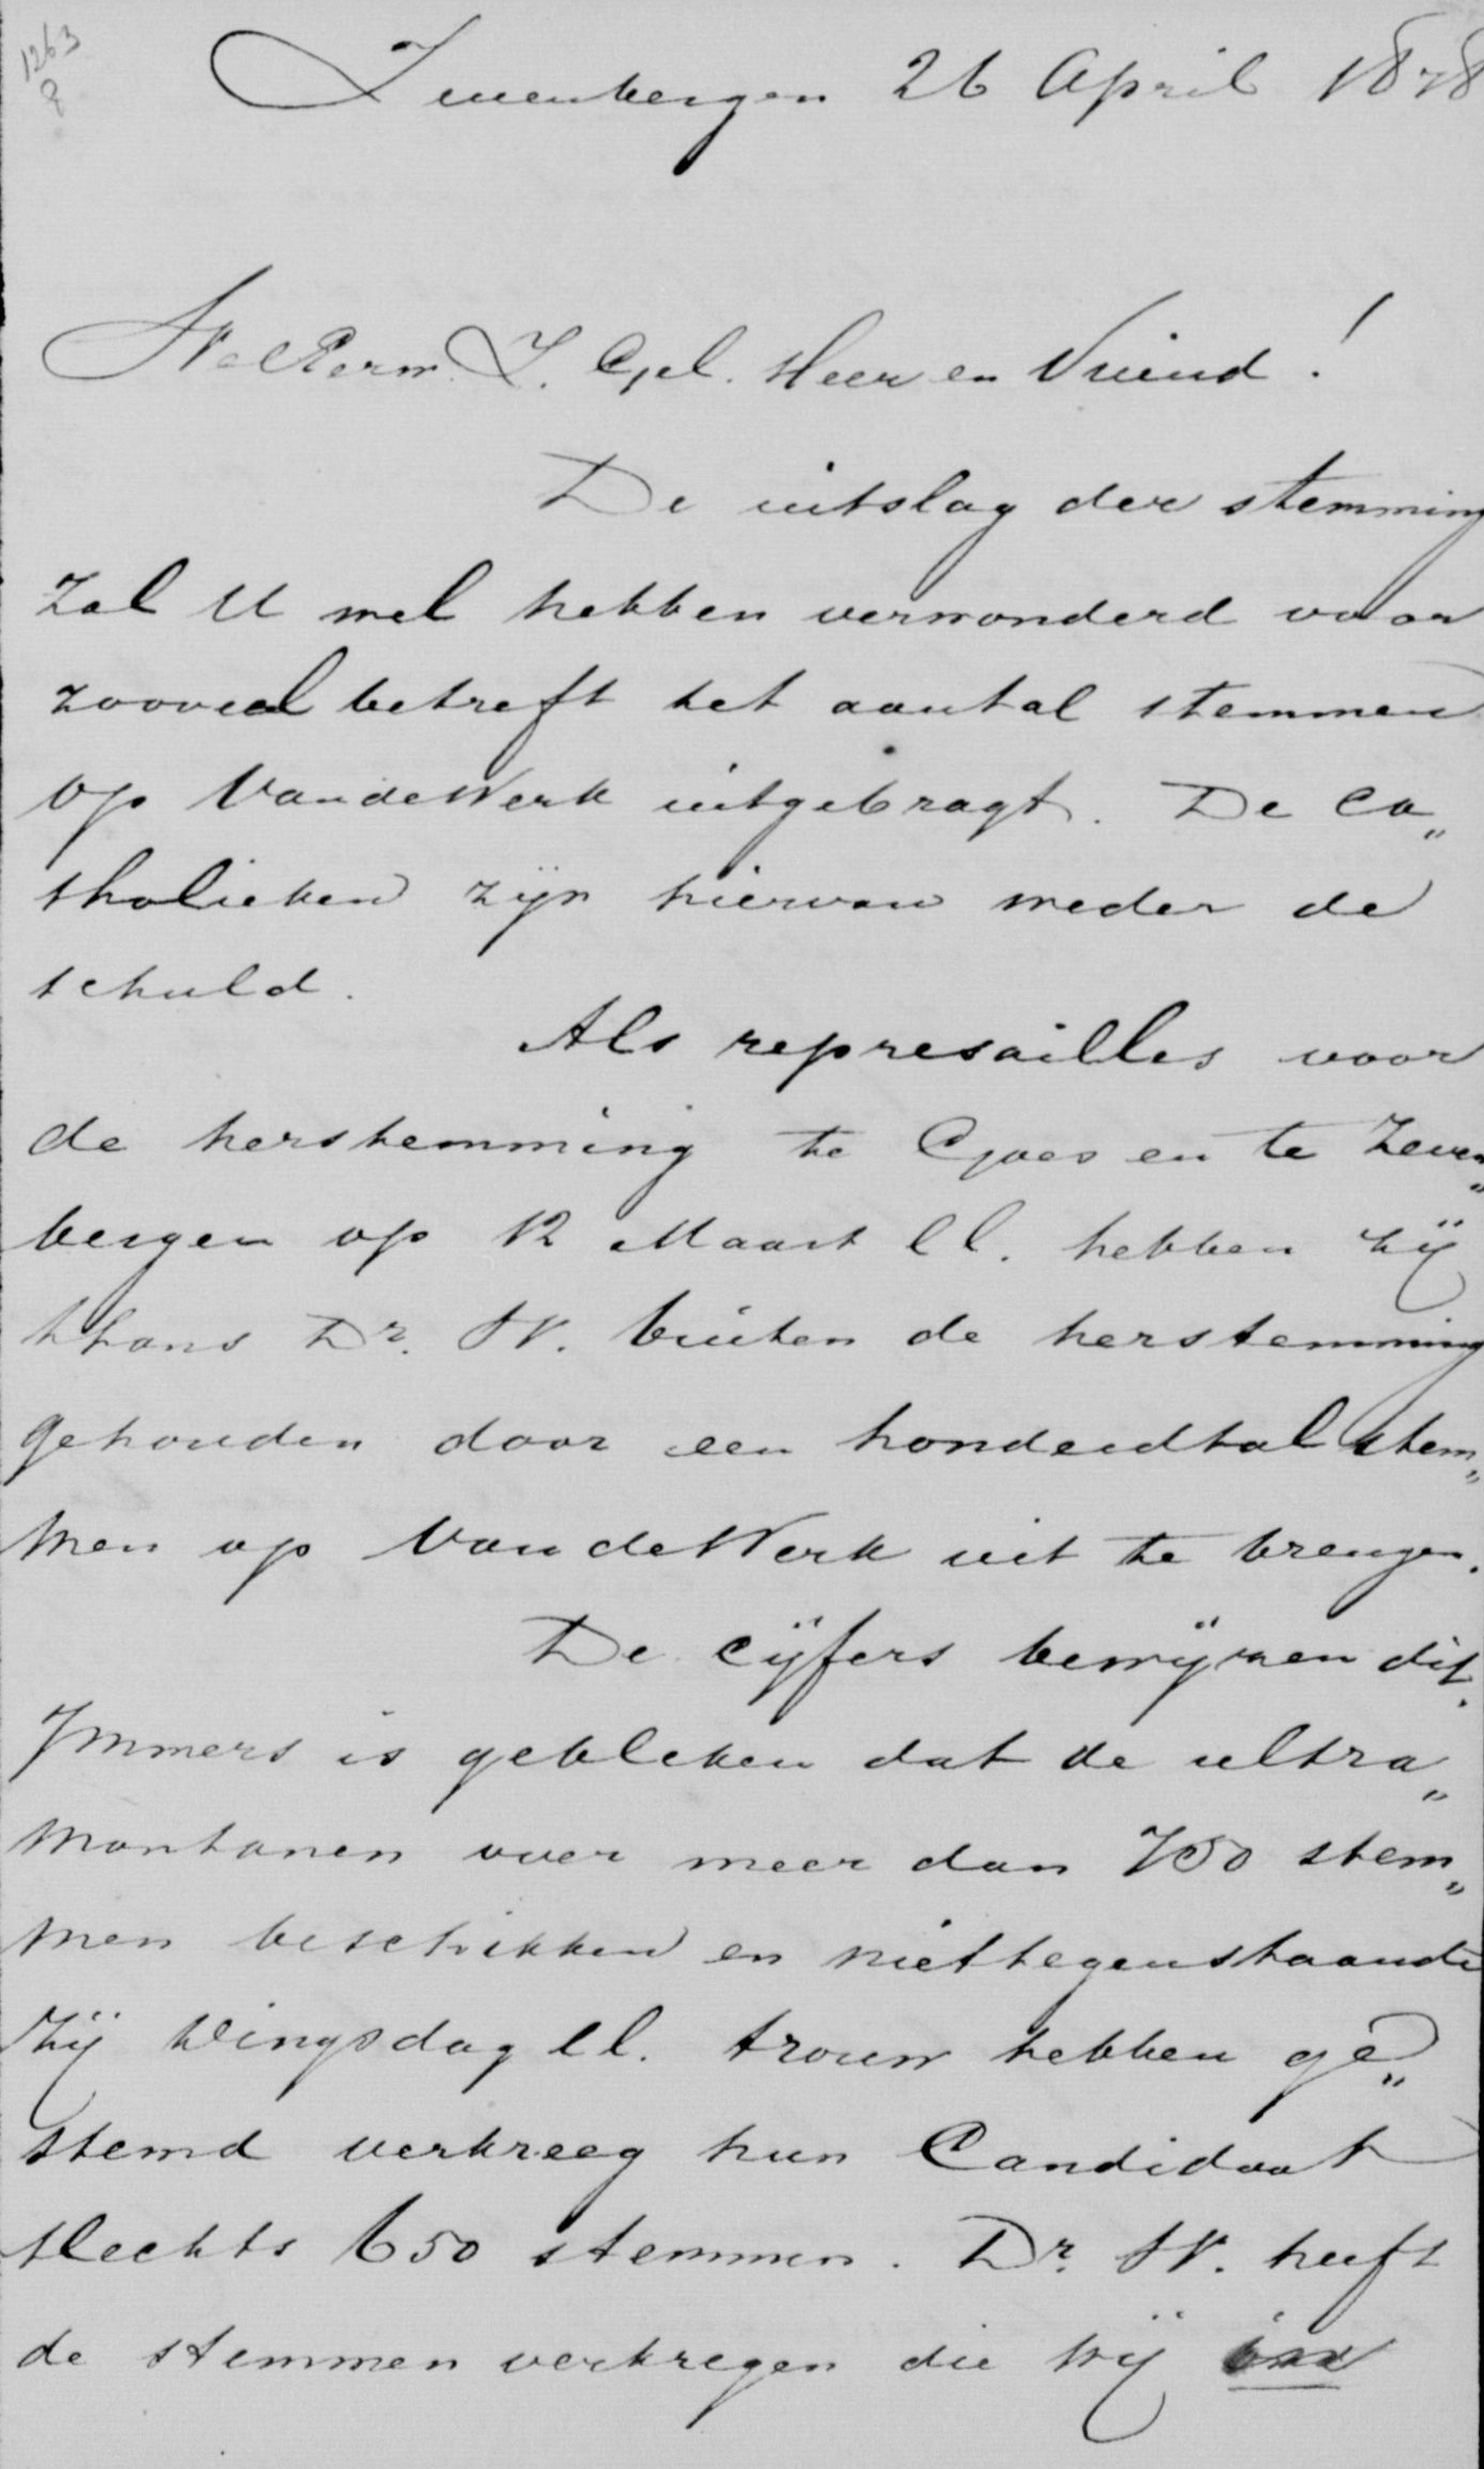 1263
Zevenbergen 26 April 1878
WelEerw. Z. Gel. Heer en Vriend!
De uitslag der stemming
zal U wel hebben verwonderd voor
zooveel betreft het aantal stemmen
op VandeWerk uitgebragt. De Ca„
tholieken zijn hiervan weder de
schuld.
Als represailles voor
de herstemming te Goes en te Zeven„
bergen op 12 Maart ll. hebben zij
thans Dr. W. buiten de herstemming
gehouden door een honderdtal stem„
men op VandeWerk uit te brengen.
De cijfers bewijzen dit.
Immers is gebleken dat de ultra„
montanen over meer dan 750 stem„
men beschikken en niettegenstaande
zij Dingsdag ll. trouw hebben ge„
stemd verkreeg hun Candidaat
slechts 650 stemmen. Dr. W. heeft
de stemmen verkregen die wij